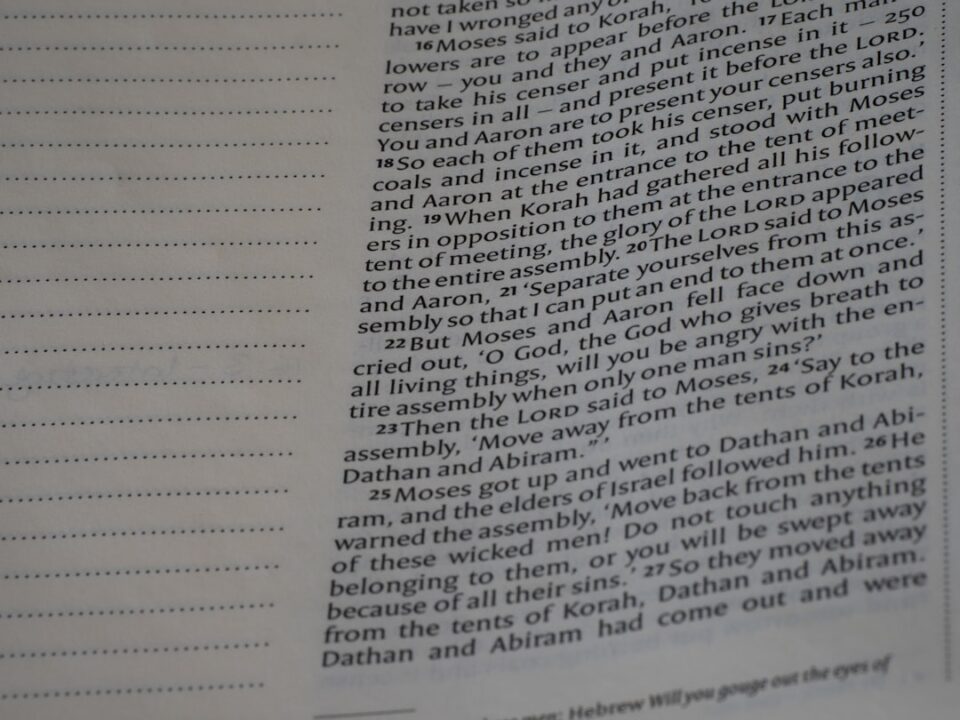 not taken so
have I wronged any of
16Moses said to Korah,
lowers are to appear before the LORD
row – you and they and Aaron. 17Each man
to take his censer and put incense in it – 250
censers in all – and present it before the LORD.
You and Aaron are to present your censers also.’
18So each of them took his censer, put burning
coals and incense in it, and stood with Moses
and Aaron at the entrance to the tent of meet-
ing. 19When Korah had gathered all his follow-
ers in opposition to them at the entrance to the
tent of meeting, the glory of the LORD appeared
to the entire assembly. 20The LORD said to Moses
and Aaron, 21‘Separate yourselves from this as-
sembly so that I can put an end to them at once.’
22But Moses and Aaron fell face down and
cried out, ‘O God, the God who gives breath to
all living things, will you be angry with the en-
tire assembly when only one man sins?’
23Then the LORD said to Moses, 24‘Say to the
assembly, “Move away from the tents of Korah,
Dathan and Abiram.”’
25Moses got up and went to Dathan and Abi-
ram, and the elders of Israel followed him. 26He
warned the assembly, ‘Move back from the tents
of these wicked men! Do not touch anything
belonging to them, or you will be swept away
because of all their sins.’ 27So they moved away
from the tents of Korah, Dathan and Abiram.
Dathan and Abiram had come out and were
men; Hebrew Will you gouge out the eyes of